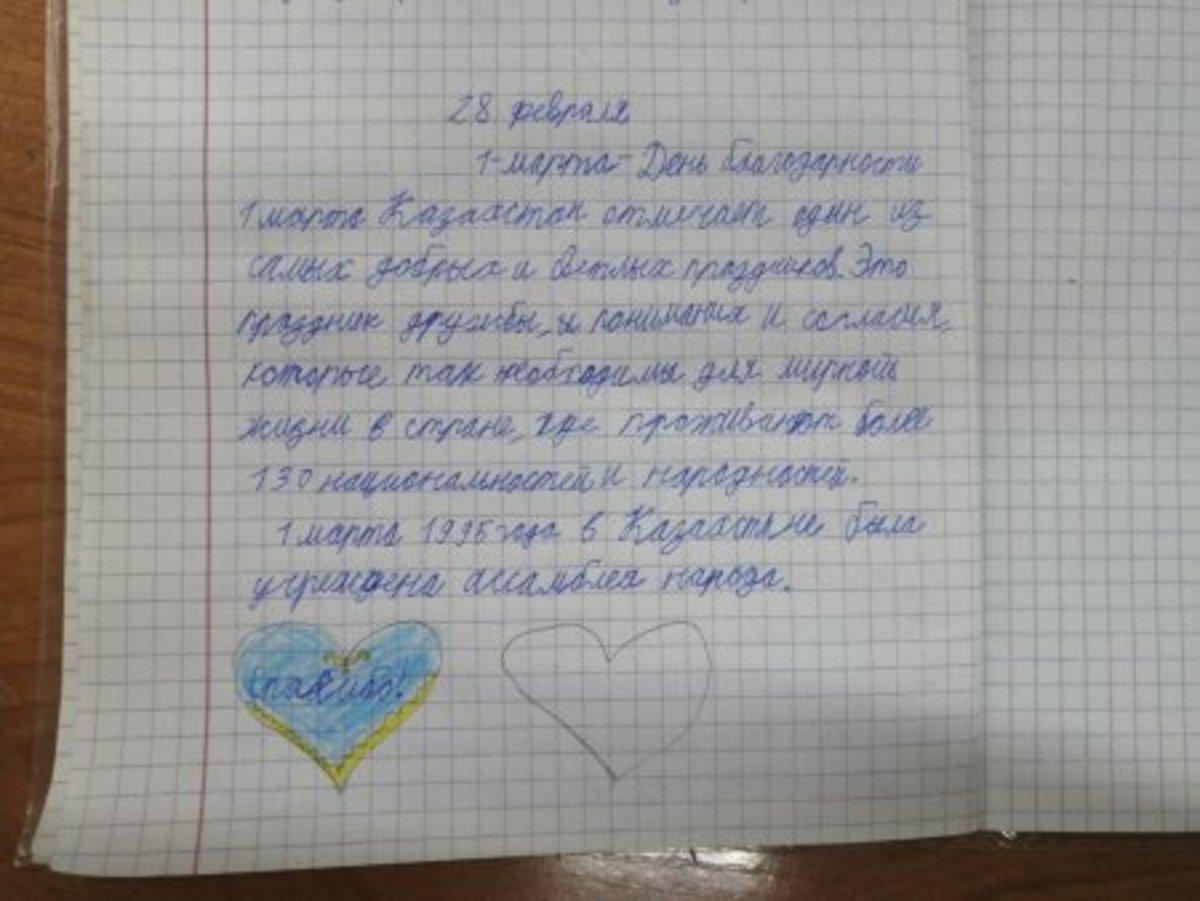 28 февраля
1-марта-День благодарности
1 марта Казахстан отмечает один из
самых добрых и светлых праздников. Это
праздник дружбы, и понимания и согласия,
которые так необходимы для мирной
жизни в стране, где проживают более
130 национальностей и народностей.
1 марта 1995 года в Казахстане была
учреждена ассамблея народа.
Спасибо!